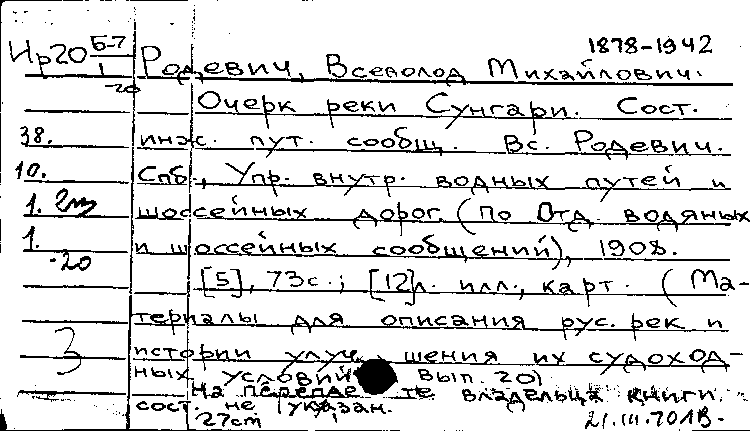 1878-1942
Ир20 Б-7
1
-20
Родевич, Всеволод Михайлович.
Очерк реки Сунгари. Сост.
38. инж. пут. сообщ. Вс. Родевич.
10. Спб., Упр. внутр. водных путей и
1. шоссейных дорог. (по Отд. водяных
1. и шоссейных сообщений), 1908.
-20
[5], 73с.; [12]л. илл., карт. (Ма-
териалы для описания рус. рек и
3 истории улучшения их судоход-
ных условий Вып. 20)
На переплете владельца книги.
сост. не указан.
27cm
21.III.701В.